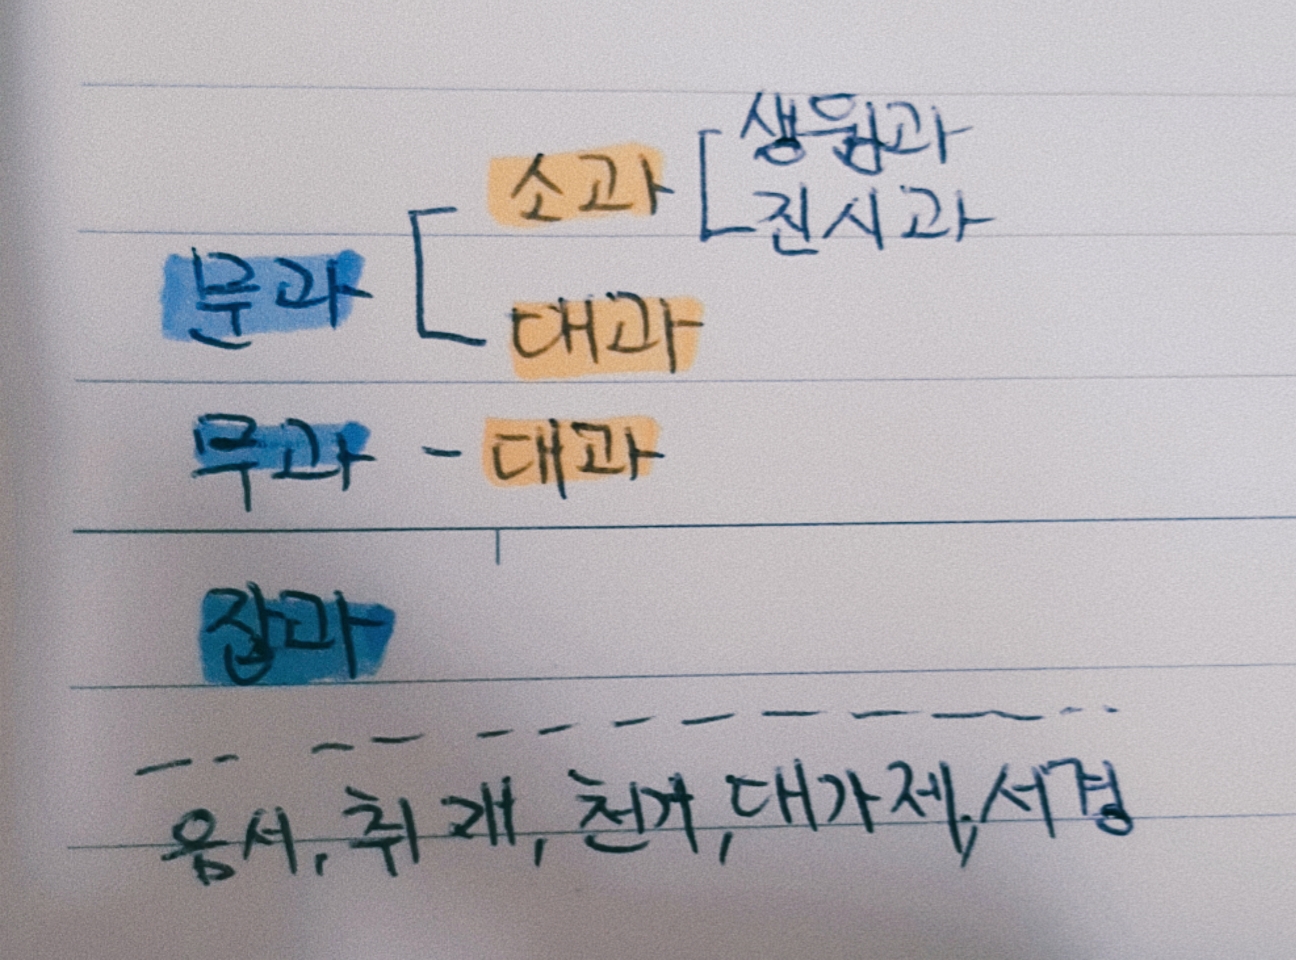 소과 생원과
진시과
문과
대과
무과 - 대과
잡과
음서, 취재, 천거, 대가제, 서경